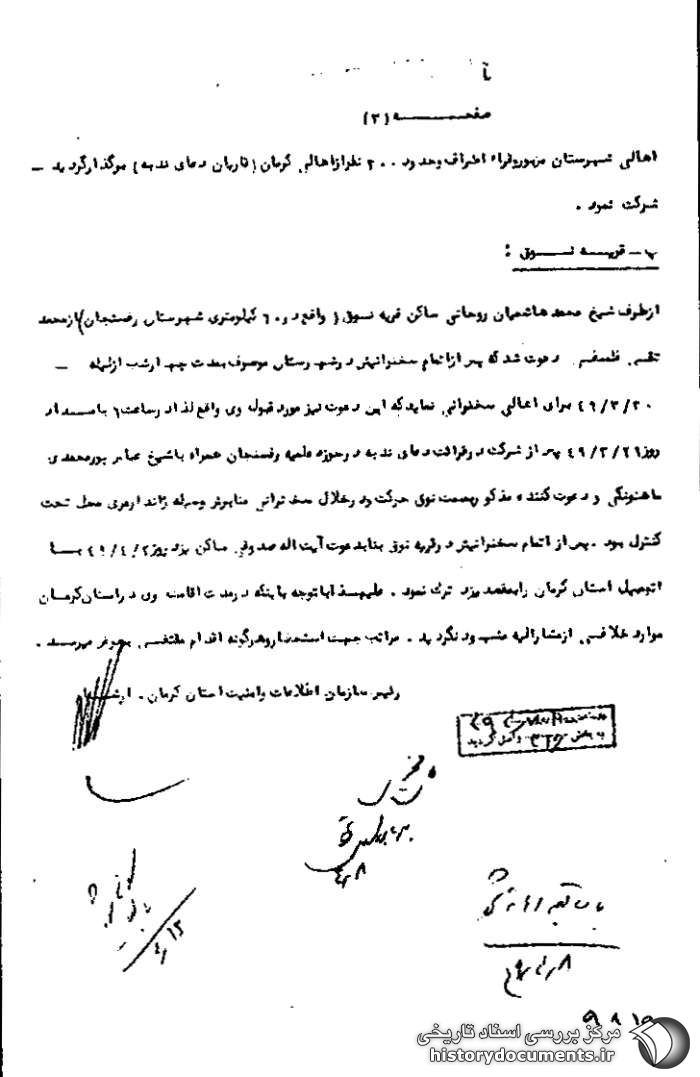 صفحـــــه (۲)
اهالی شهرستان مزبور وقراء اطراف وحدود ۲۰۰ نفر ازاهالی کرمان (قاریان دعای ندبه) برگذار گردید ـ
شرکت نمود .
پ ـ قریـــه نـــوق :
ازطرف شیخ محمد هاشمیان روحانی ساکن قریه نسوق( واقع در ۶۰ کیلومتری شهرستان رفسنجان) از محمد
تقی فلسفی دعوت شد که پس ازاتمام سخنرانیش در شهرستان موصوف بمدت چهارشب ازلیله ـ
۴۹/۳/۳۰ برای اهالی سخنرانی نماید که این دعوت نیز مورد قبول وی واقع لذا در ساعت ۶ بامداد
روز ۴۹/۳/۲۹ پس از شرکت درقرائت دعای ندبه درحوزه علمیه رفسنجان همراه باشیخ عباس پورمحمدی
ماهونکی و دعوت کننده مذکور بسمت نوق حرکت ودرخلال سخنرانی منابرش وسیله ژاندارمری محل تحت
کنترل بود . پس از اتمام سخنرانیش درقریه نوق بنابدعوت آیت اله صدوقی ساکن یزد روز ۴۹/۴/۲ بـــا
اتومبیل استان کرمان رابمقصد یزد ترک نمود . علیهـــذا باتوجه باینکه درمدت اقامت وی دراستان کرمـان
موارد خلافـــی ازمشارالیه مشهود نگردید . مراتب جهت استحضار وهرگونه اقدام مقتضـــی بعرض میرسد .
رئیس سازمان اطلاعات وامنیت استان کرمان .
۴/۸
۴/۱۳
مرکز بررسی اسناد تاریخی
historydocuments.ir